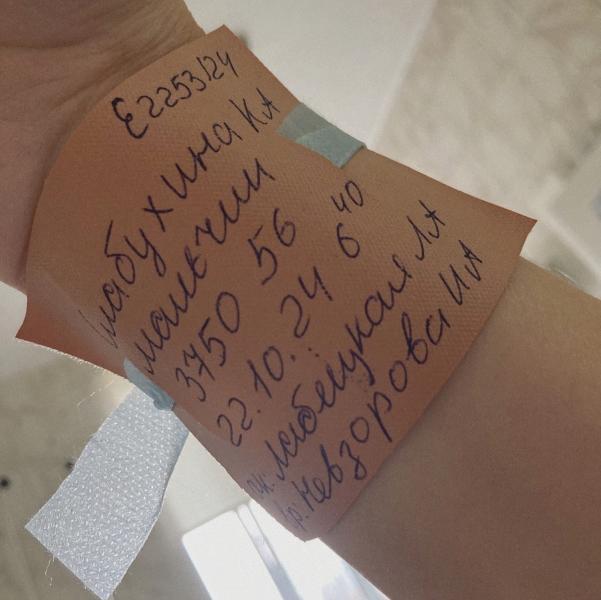 E2253124
Шабухина К А
мальчик
3750 56
22.10.24 6 40
ак. Лабецкая Л А
вр. Невзорова И А